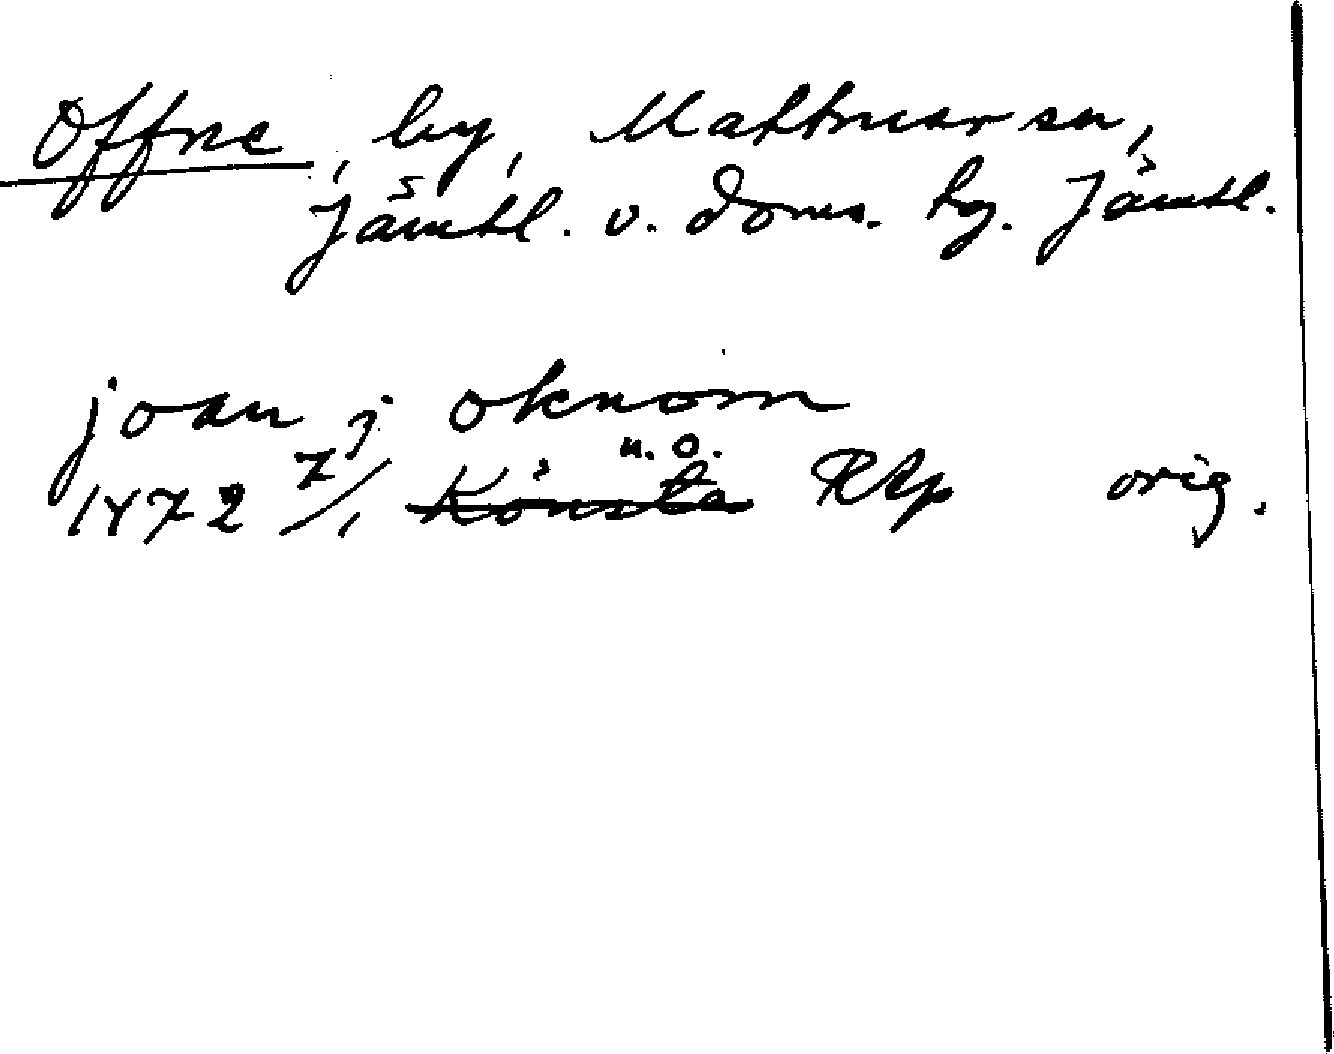 Offne, by, Mattmar sn,
Jämtl. v. doms. hg. Jämtl.
joan j oknom
n. o.
1472 7/1, Könsta RAp orig.